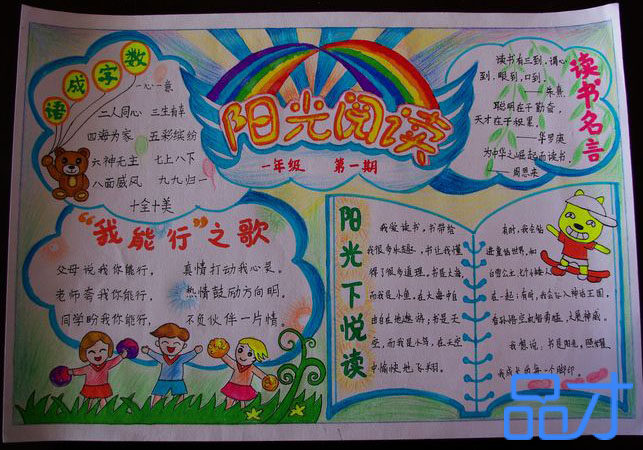 数字成语
一心一意
二人同心 三生有幸
四海为家 五彩缤纷
六神无主 七上八下
八面威风 九九归一
十全十美
阳光阅读
一年级 第一期
读书名言
读书有三到，谓心
到，眼到，口到。
——朱熹
聪明在于勤奋，
天才在于积累。
——华罗庚
为中华之崛起而读书。
——周恩来
“我能行”之歌
父母说我你能行， 真情打动我心灵。
老师夸我你能行， 热情鼓励方向明。
同学盼我你能行， 不负伙伴一片情。
阳光下悦读
我爱读书，书带给
我很多乐趣，书让我懂
得了很多道理。书是大海
而我是小鱼，在大海中自
由自在地遨游；书是天
空，而我是小鸟，在天空
中愉快地飞翔。
有时，我会钻
进童话世界，和
白雪公主、七个小矮人
在一起；有时，我会钻入神话王国，
我想说，书是阳光，照耀
我成长的每一个脚印。
品才